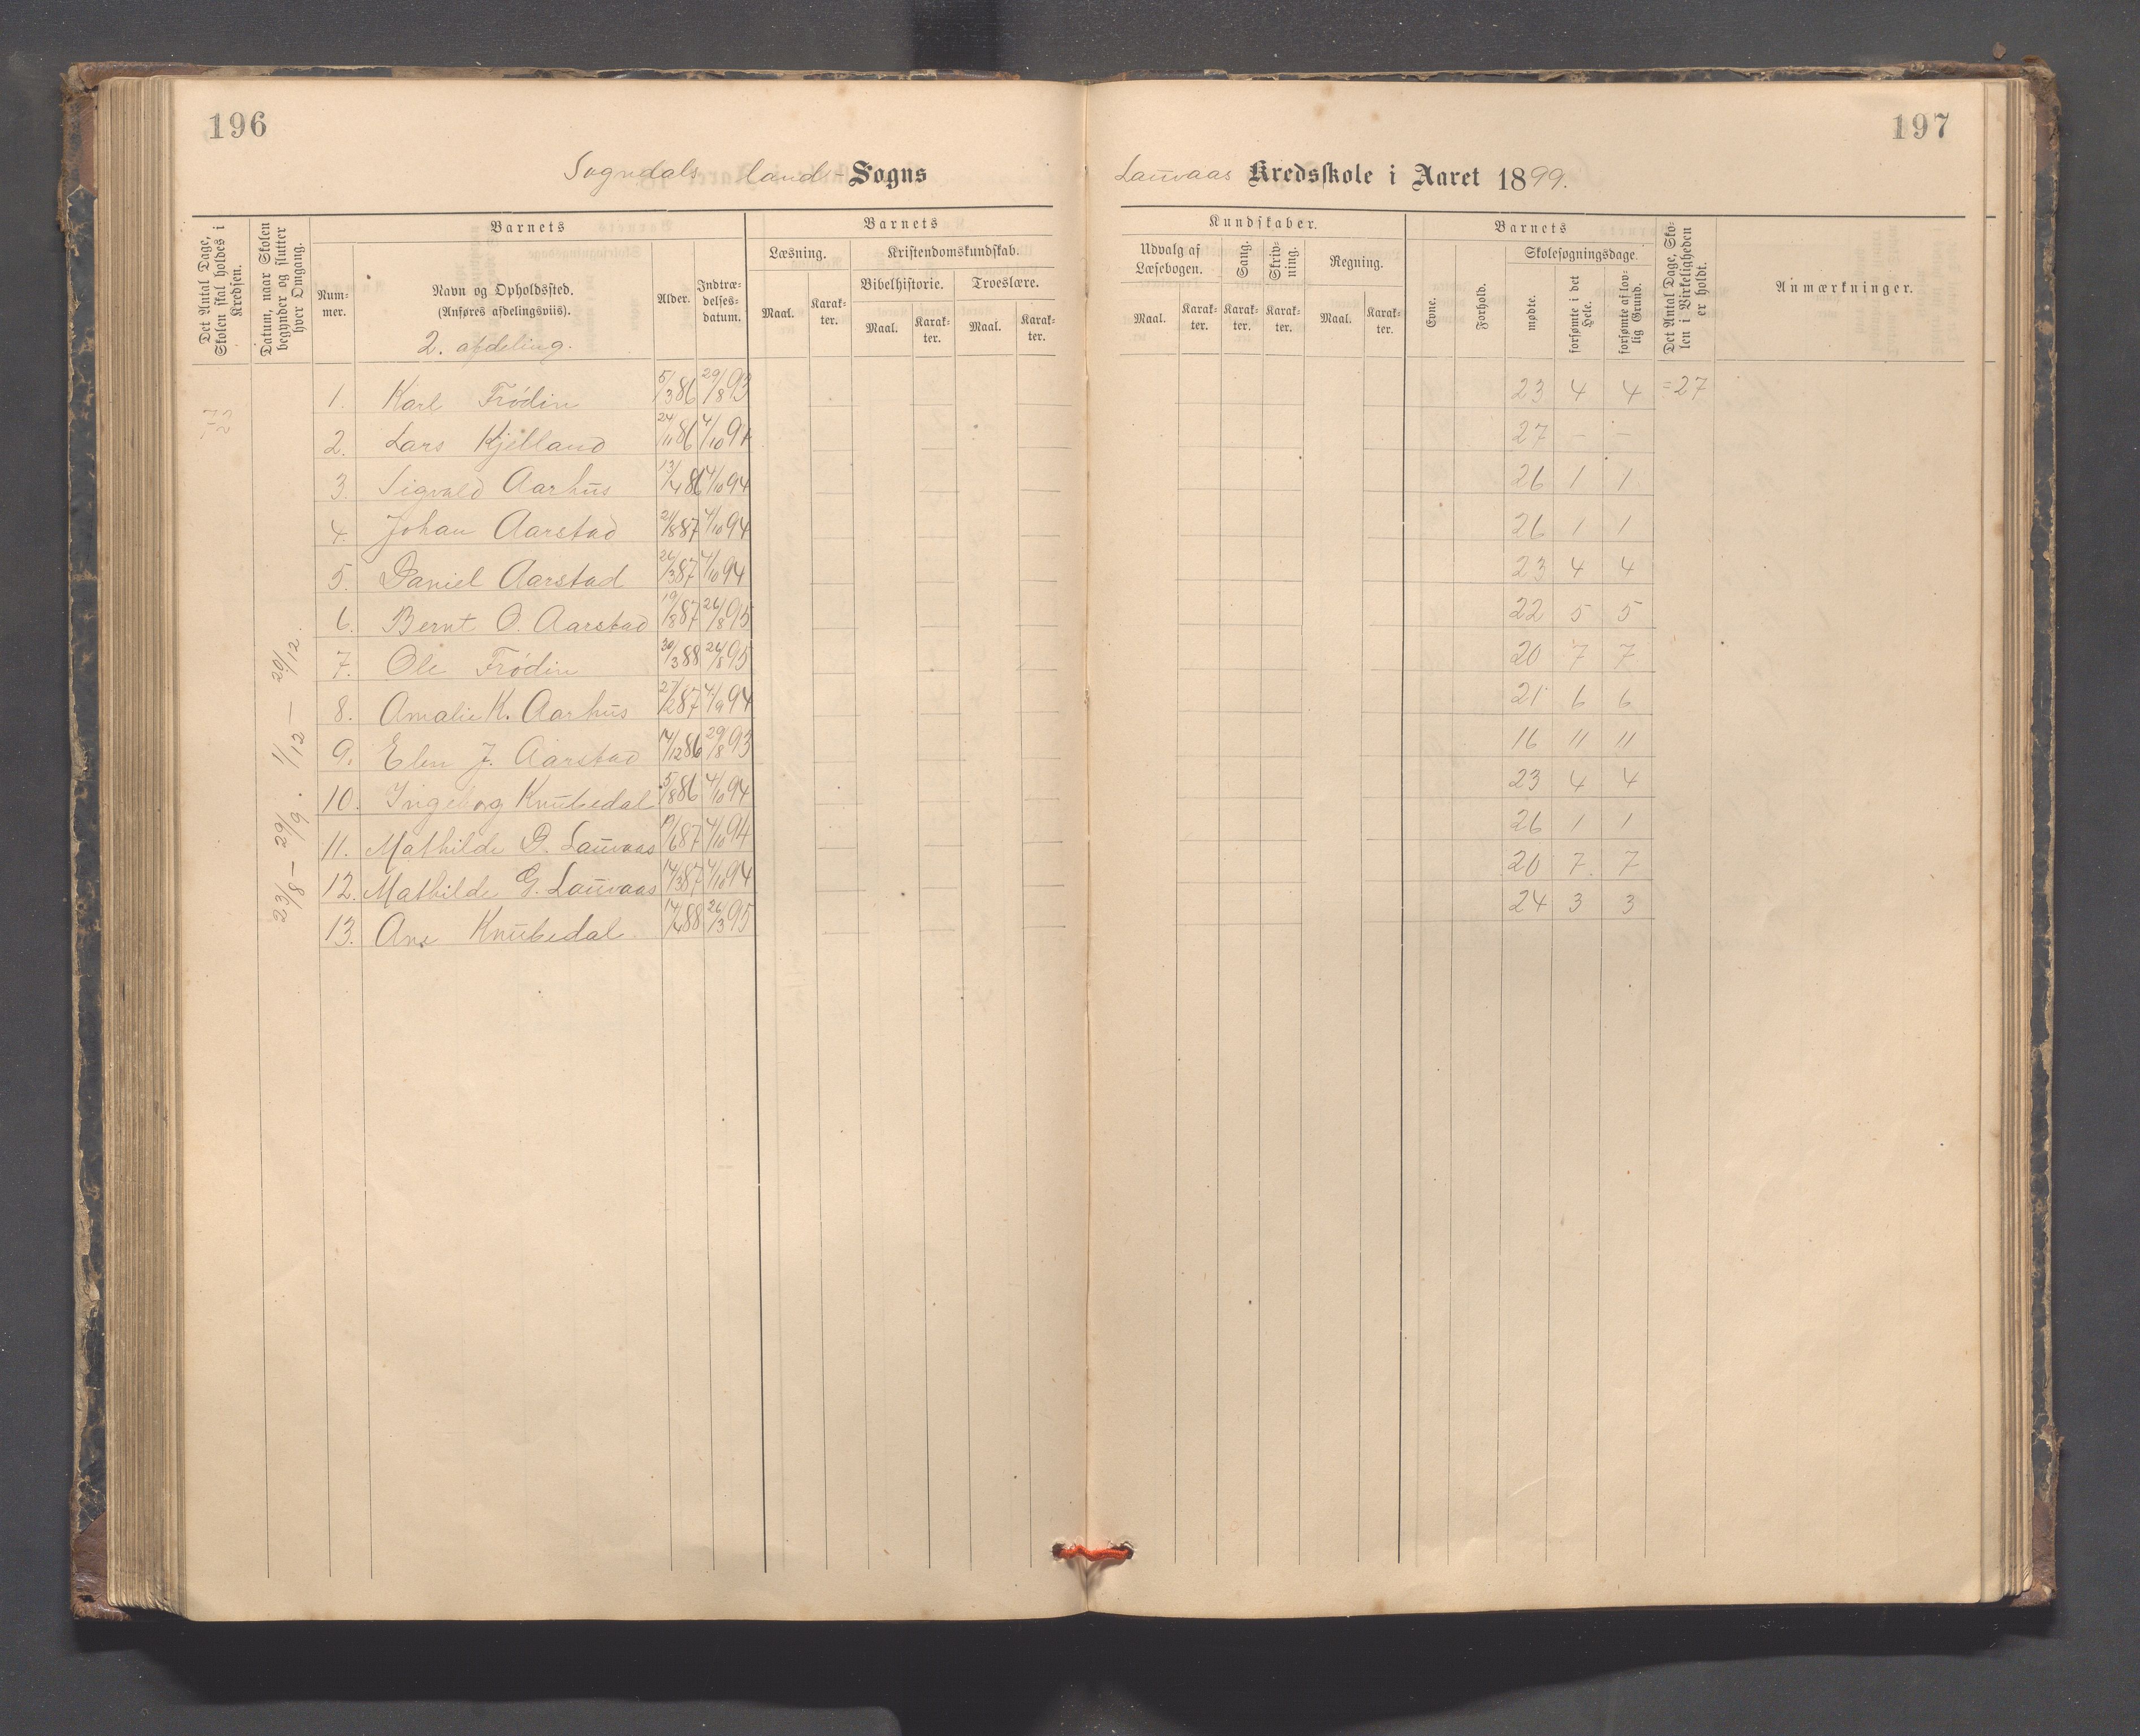 196
197
Sogndals land-Sogns
Lauvaas Kredsskole i Aaret 1899.
Det Antal Dage, Skolen skal holdes i Kredsen.
Datum, naar Skolen begynder og slutter hver Omgang.
Barnets
Num-mer.
Navn og Opholdssted.
(Anføres afdelingsviis).
2. afdeling.
Alder.
Indtræ-delses-datum.
Barnets
Læsning.
Maal.
Karak-ter.
Kristendomskundskab.
Bibelhistorie.
Maal.
Karak-ter.
Troeslære.
Maal.
Karak-ter.
Kundskaber.
Udvalg af Læsebogen.
Maal.
Karak-ter.
Sang.
Karak-ter.
Skriv-ning.
Karak-ter.
Regning.
Maal.
Karak-ter.
Barnets
Evne.
Forhold.
Skolesøgningsdage
mødte.
forsømte i det Hele.
forsømte af lov-lig Grund.
Det Antal Dage, Sko-len i Virkeligheden er holdt.
Anmærkninger.
72
23/8 – 29/9. 1/12 – 20/12.
1. Karl Frödin 5/3 86 29/8 93 23 4 4 =27
2. Lars Kjelland 24/11 86 4/10 94 27 – –
3. Sigvald Aarhus 13/4 86 4/10 94 26 1 1
4. Johan Aarstad 21/8 87 4/10 94 26 1 1
5. Daniel Aarstad 26/3 87 4/10 94 23 4 4
6. Bernt O. Aarstad 19/8 87 26/8 95 22 5 5
7. Ole Frödin 30/3 88 26/8 95 20 7 7
8. Amalie K. Aarhus 27/2 87 4/9 94 21 6 6
9. Elen J. Aarstad 14/12 86 29/8 93 16 11 11
10. Ingeborg Knubedal 5/8 86 4/10 94 23 4 4
11. Mathilde D. Lauvaas 19/6 87 4/10 94 26 1 1
12. Mathilde G. Lauvaas 14/3 87 4/10 94 20 7. 7
13. Ane Knubedal 14/4 88 26/3 95 24 3 3